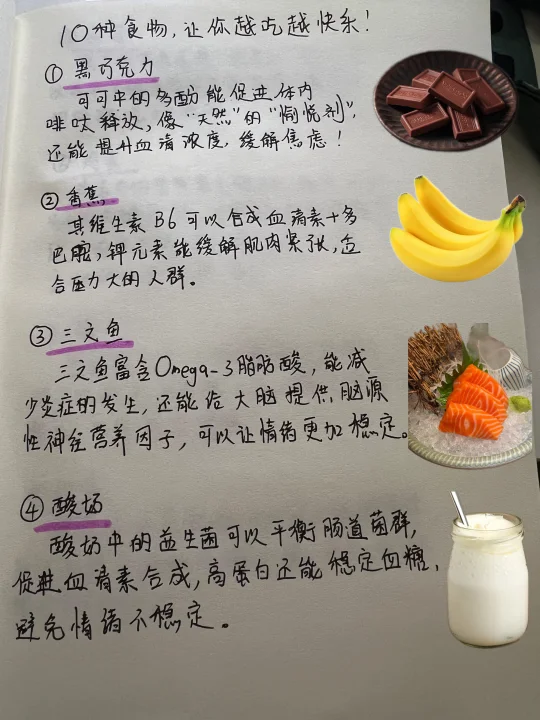 10种食物,让你越吃越快乐!
① 黑巧克力
可可中的多酚能促进体内
啡肽释放,像“天然”的“愉悦剂”,
还能提升血清浓度,缓解焦虑!
② 香蕉
其维生素B6可以合成血清素+多
巴胺,钾元素能缓解肌肉紧张,适
合压力大的人群。
③ 三文鱼
三文鱼富含Omega-3脂肪酸,能减
少炎症的发生,还能给大脑提供脑源
性神经营养因子,可以让情绪更加稳定。
④ 酸奶
酸奶中的益生菌可以平衡肠道菌群,
促进血清素合成,高蛋白还能稳定血糖,
避免情绪不稳定。